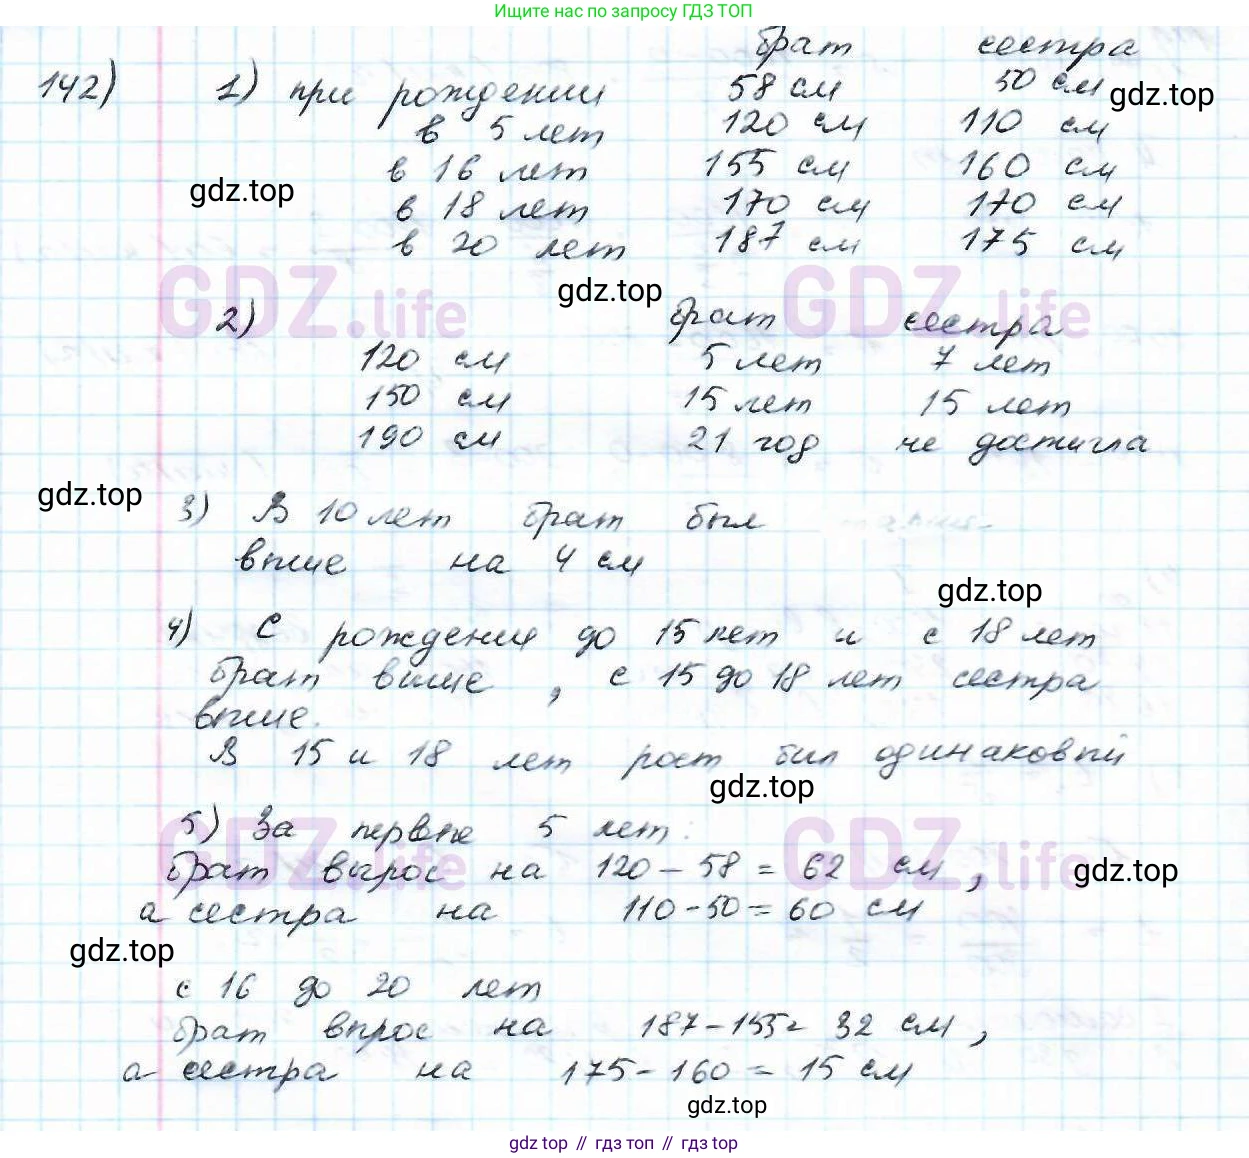 Ищите нас по запросу ГДЗ ТОП
брат сестра
142) 1) при рождении 58 см 50 см
gdz.top
в 5 лет 120 см 110 см
в 16 лет 155 см 160 см
gdz.top
в 18 лет 170 см 170 см
в 20 лет 187 см 175 см
gdz.top
GDZ.life GDZ.life
2) брат сестра
120 см 5 лет 7 лет
150 см 15 лет 15 лет
190 см 21 год не достигла
gdz.top
3) В 10 лет брат был
выше на 4 см
gdz.top
4) С рождения до 15 лет и с 18 лет
брат выше, с 15 до 18 лет сестра
выше.
В 15 и 18 лет рост был одинаковый
gdz.top
5) За первые 5 лет:
GDZ.life GDZ.life
брат вырос на 120 - 58 = 62 см,
gdz.top
а сестра на 110 - 50 = 60 см
gdz.top
с 16 до 20 лет
брат вырос на 187 - 155 = 32 см,
а сестра на 175 - 160 = 15 см
gdz.top
gdz top // гдз топ // gdz top